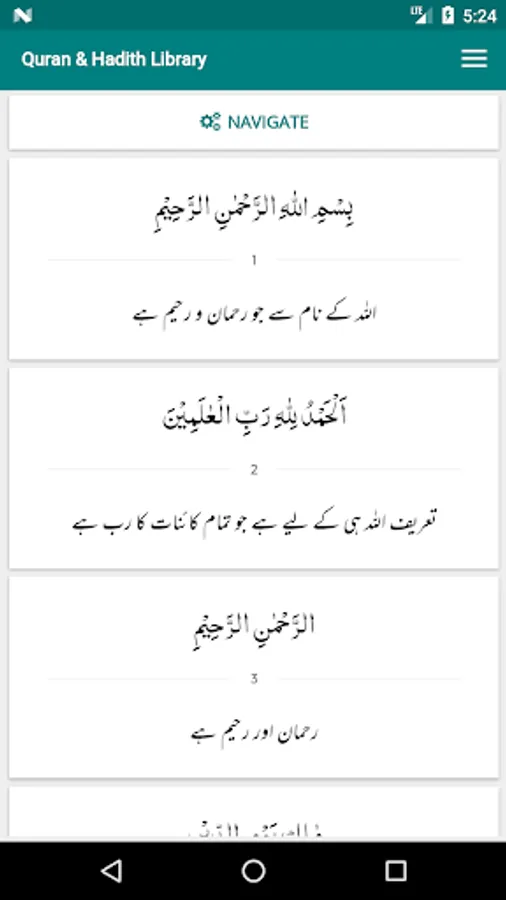 LTE 5:24
Quran & Hadith Library
NAVIGATE
بِسْمِ اللّٰهِ الرَّحْمٰنِ الرَّحِيْمِ
1
اللہ کے نام سے جو رحمان و رحیم ہے
اَلْحَمْدُ لِلّٰهِ رَبِّ الْعٰلَمِيْنَ
2
تعریف اللہ ہی کے لیے ہے جو تمام کائنات کا رب ہے
الرَّحْمٰنِ الرَّحِيْمِ
3
رحمان اور رحیم ہے